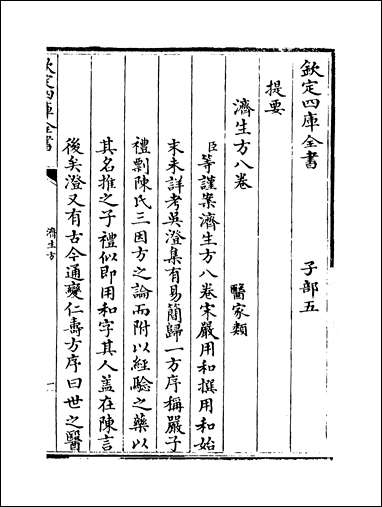 欽定四庫全書 子部五
提要 醫家類
濟生方八卷
臣等謹案濟生方八卷宋嚴用和撰用和始
末未詳考吳澄集有易簡歸一方序稱嚴子
禮剽陳氏三因方之論而附以經驗之藥以
其名推之子禮似即用和字其人蓋在陳言
後矣澄又有古今通變仁壽方序曰世之醫
欽定四庫全書
濟生方
一